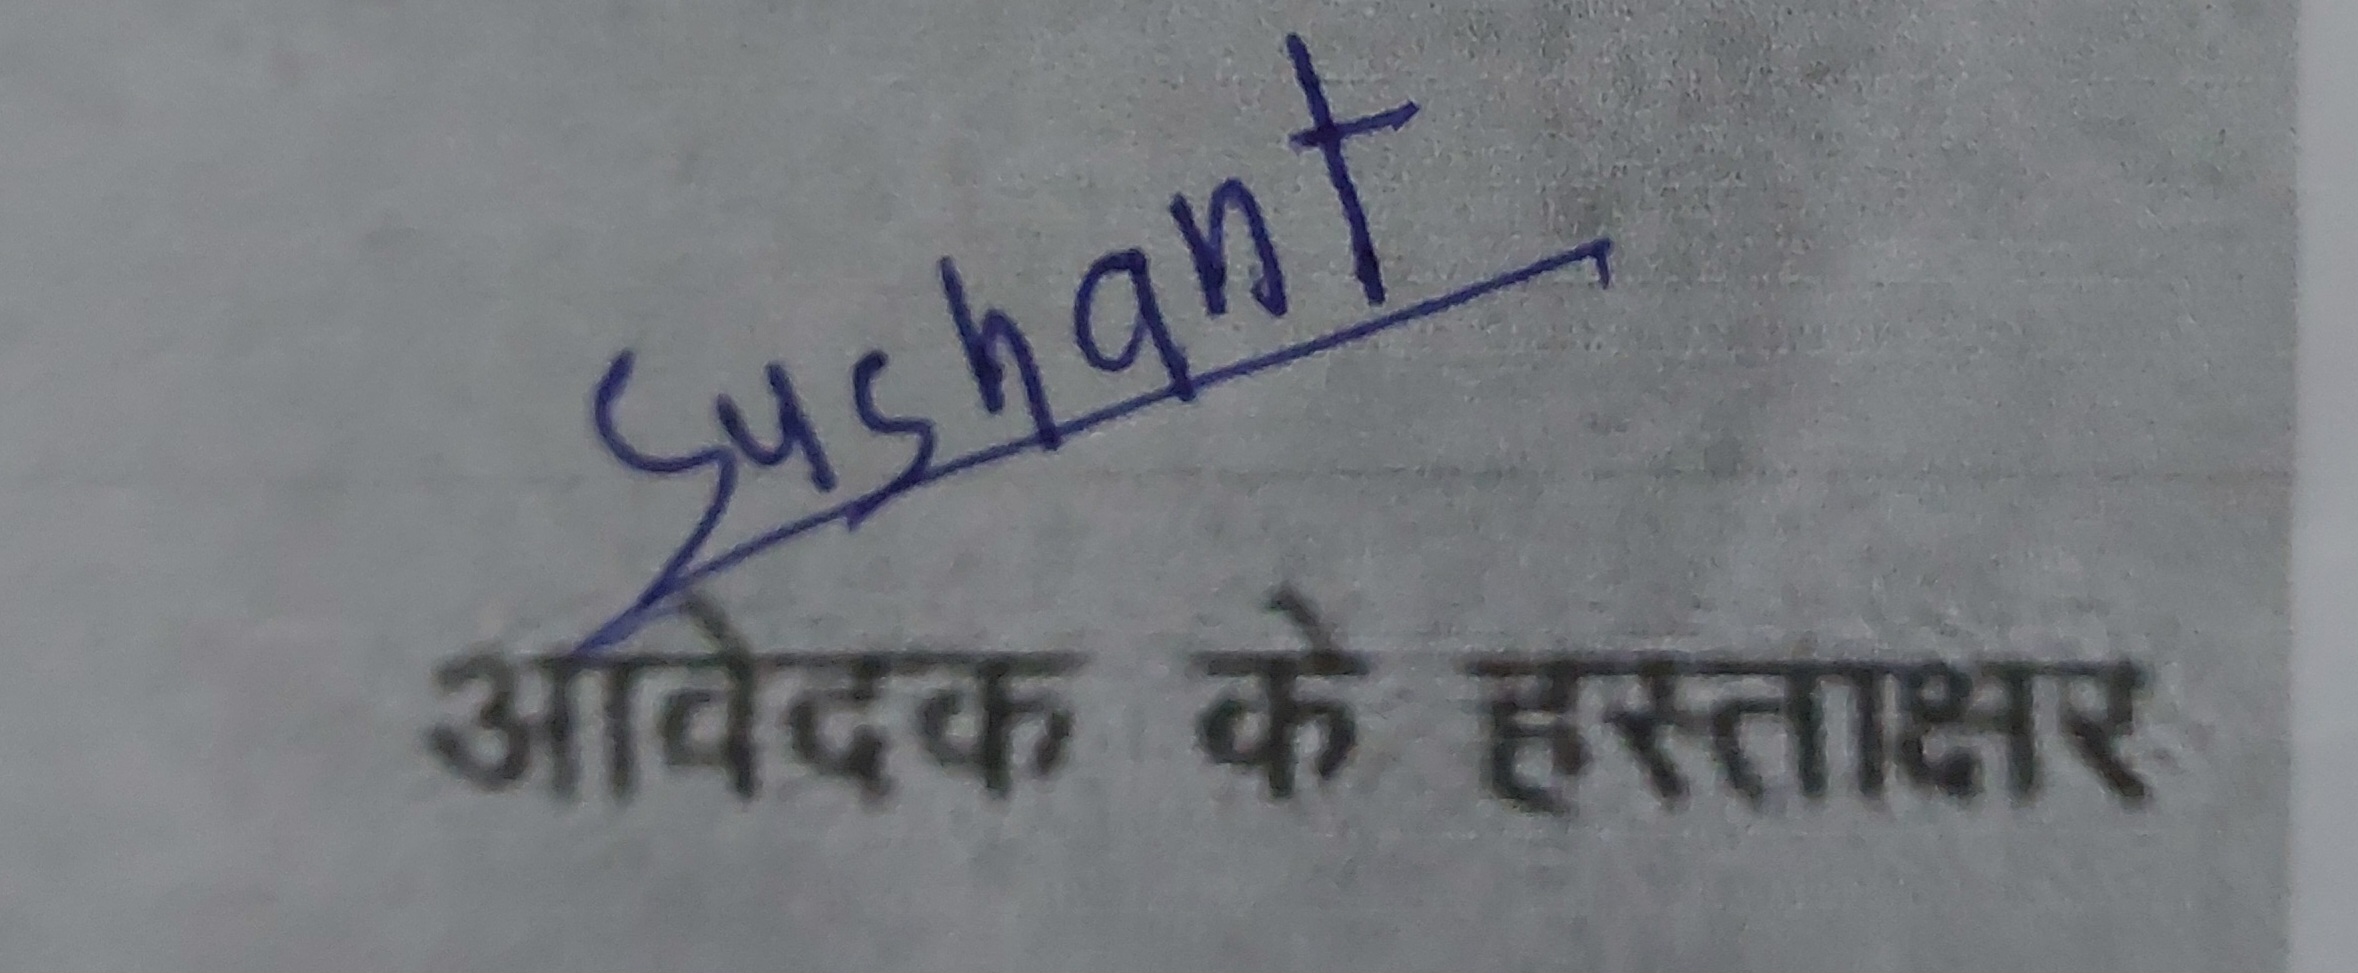 Sushant
आवेदक के हस्ताक्षर